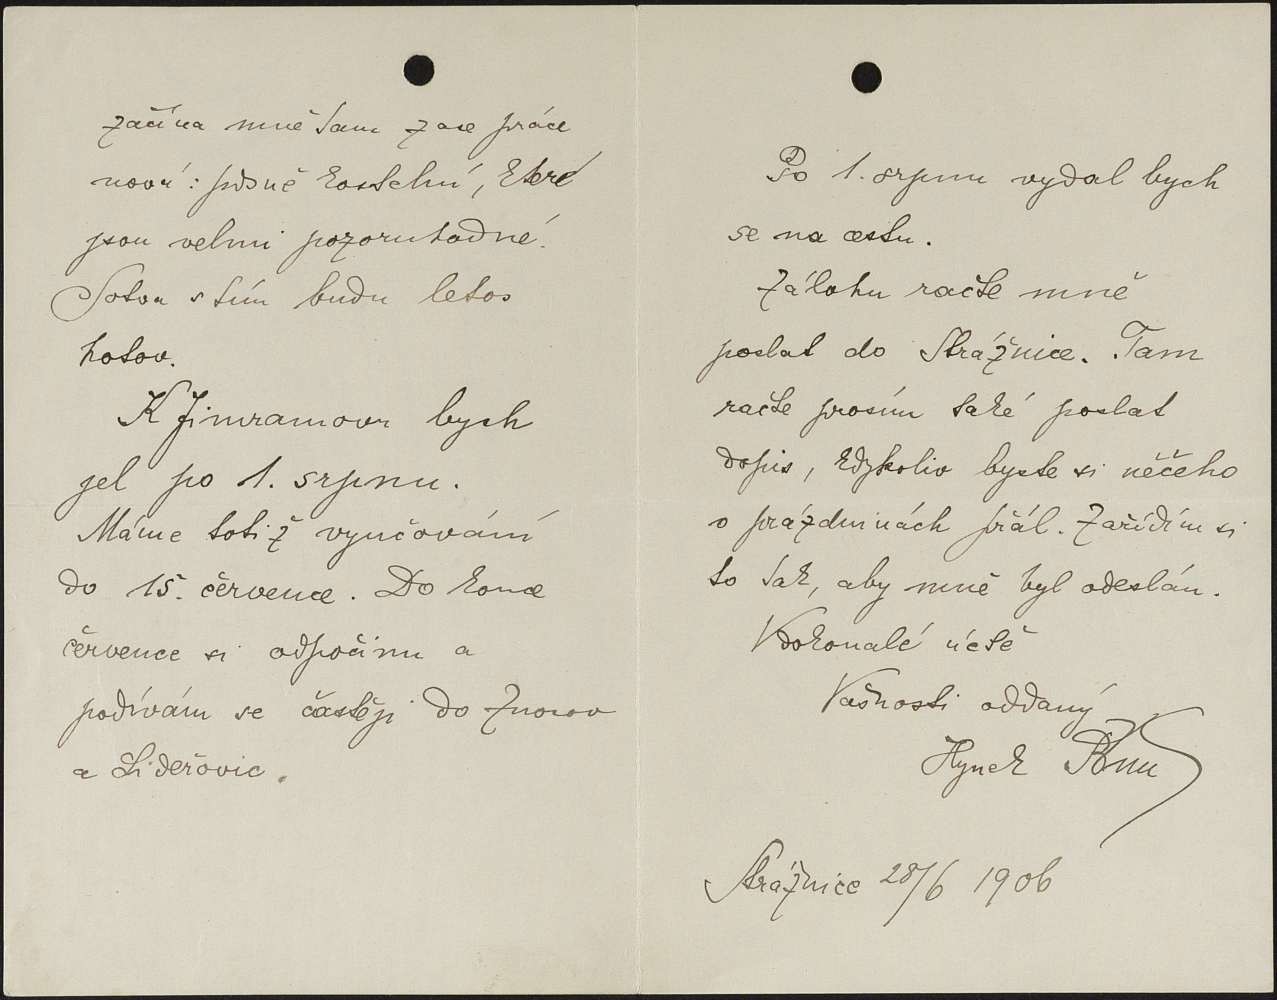 začína mně tam zase práce
nová: písně kostelní, které
jsou velmi pozoruhodné.
Sotva s tím budu letos
hotov.
K Jimramovu bych
jel po 1. srpnu.
Máme totiž vyučování
do 15. července. Do konce
července si odpočinu a
podívám se častěji do Znorov
a Lideřovic.
Po 1. srpnu vydal bych
se na cestu.
Zálohu račte mně
poslat do Strážnice. Tam
račte prosím také poslat
dopis, kdykoliv byste si něčeho
o prázdninách přál. Zařídím si
to tak, aby mně byl odeslán.
V dokonalé úctě
Vašnosti oddaný
Hynek Bím
Strážnice 28/6 1906